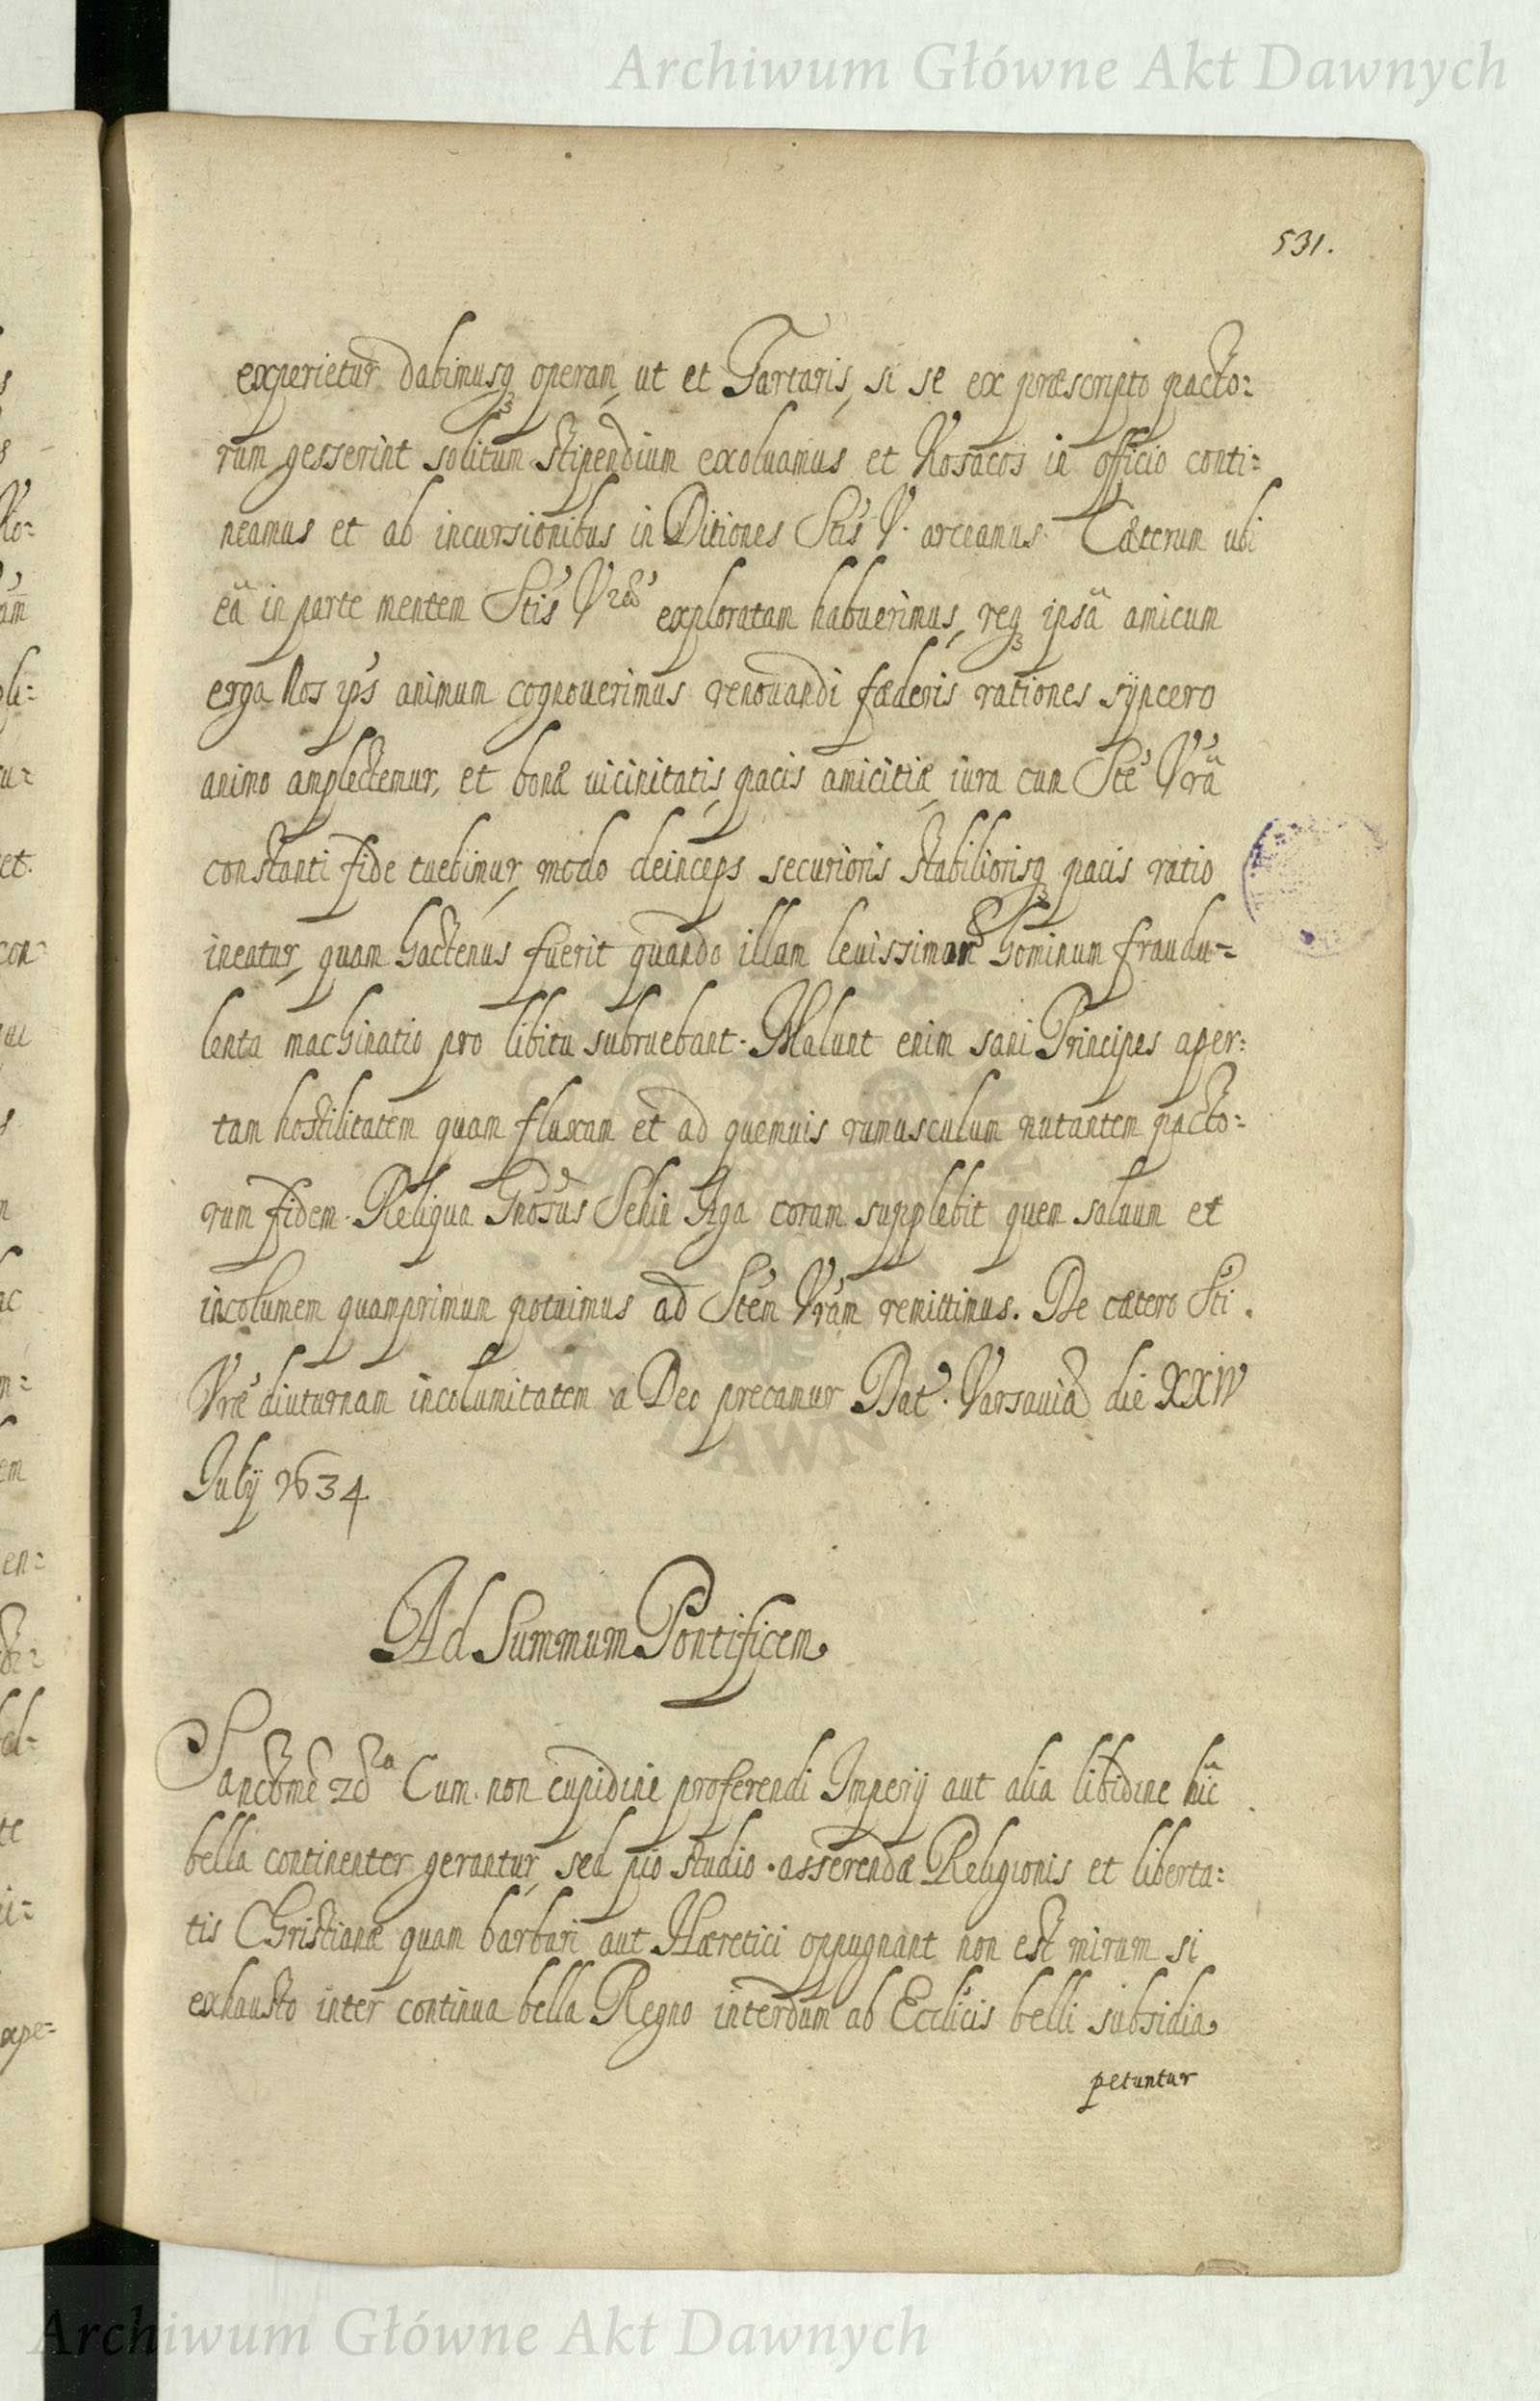 Archiwum Główne Akt Dawnych
531.
experietur dabimusq₃ operam, ut et Tartaris, si se ex præscripto pacto:
rum gesserint solitum stipendium exoluamus et Kosacos in officio conti:
neamus et ab incursionibus in Ditiones Stis V. arceamus. Cæterum ubi
eã in parte mentem Stis Vræ exploratam habuerimus, req₃ ipsã amicum
erga Nos ips animum cognouerimus renouandi fæderis rationes sÿncero
animo amplectemur, et bonæ uicinitatis, pacis amicitiæ, iura cum Ste Vrã
constanti fide tuebimur, modo deinceps securioris stabiliorisq₃ pacis ratio
ineatur, quam hactenus fuerit quando illam leuissimor hominum fraudu=
lenta machinatio pro libitu subruebant. Malunt enim sani Principes aper:
tam hostilitatem quam fluxam et ad quemuis rumusculum nutantem pacto:
rum fidem. Reliqua Gnosus Sehin Aga coram supplebit quem saluum et
incolumem quamprimum potuimus ad Stem Vram remittimus. De cætero Sti.
Vræ diuturnam incolumitatem a Deo precamur Dat. Varsauiæ die XXIV
Julij 1634
Ad Summum Pontificem
Sanctome Cum non cupidine proferendi Imperij aut alia libidine hic
bella continenter gerantur, sed pio studio asserendæ Religionis et liberta:
tis Christianæ quam barbari aut Hæretici oppugnant non est mirum si
exhausto inter continua bella Regno interdum ab Ecclicis belli subsidia
petuntur
Archiwum Główne Akt Dawnych